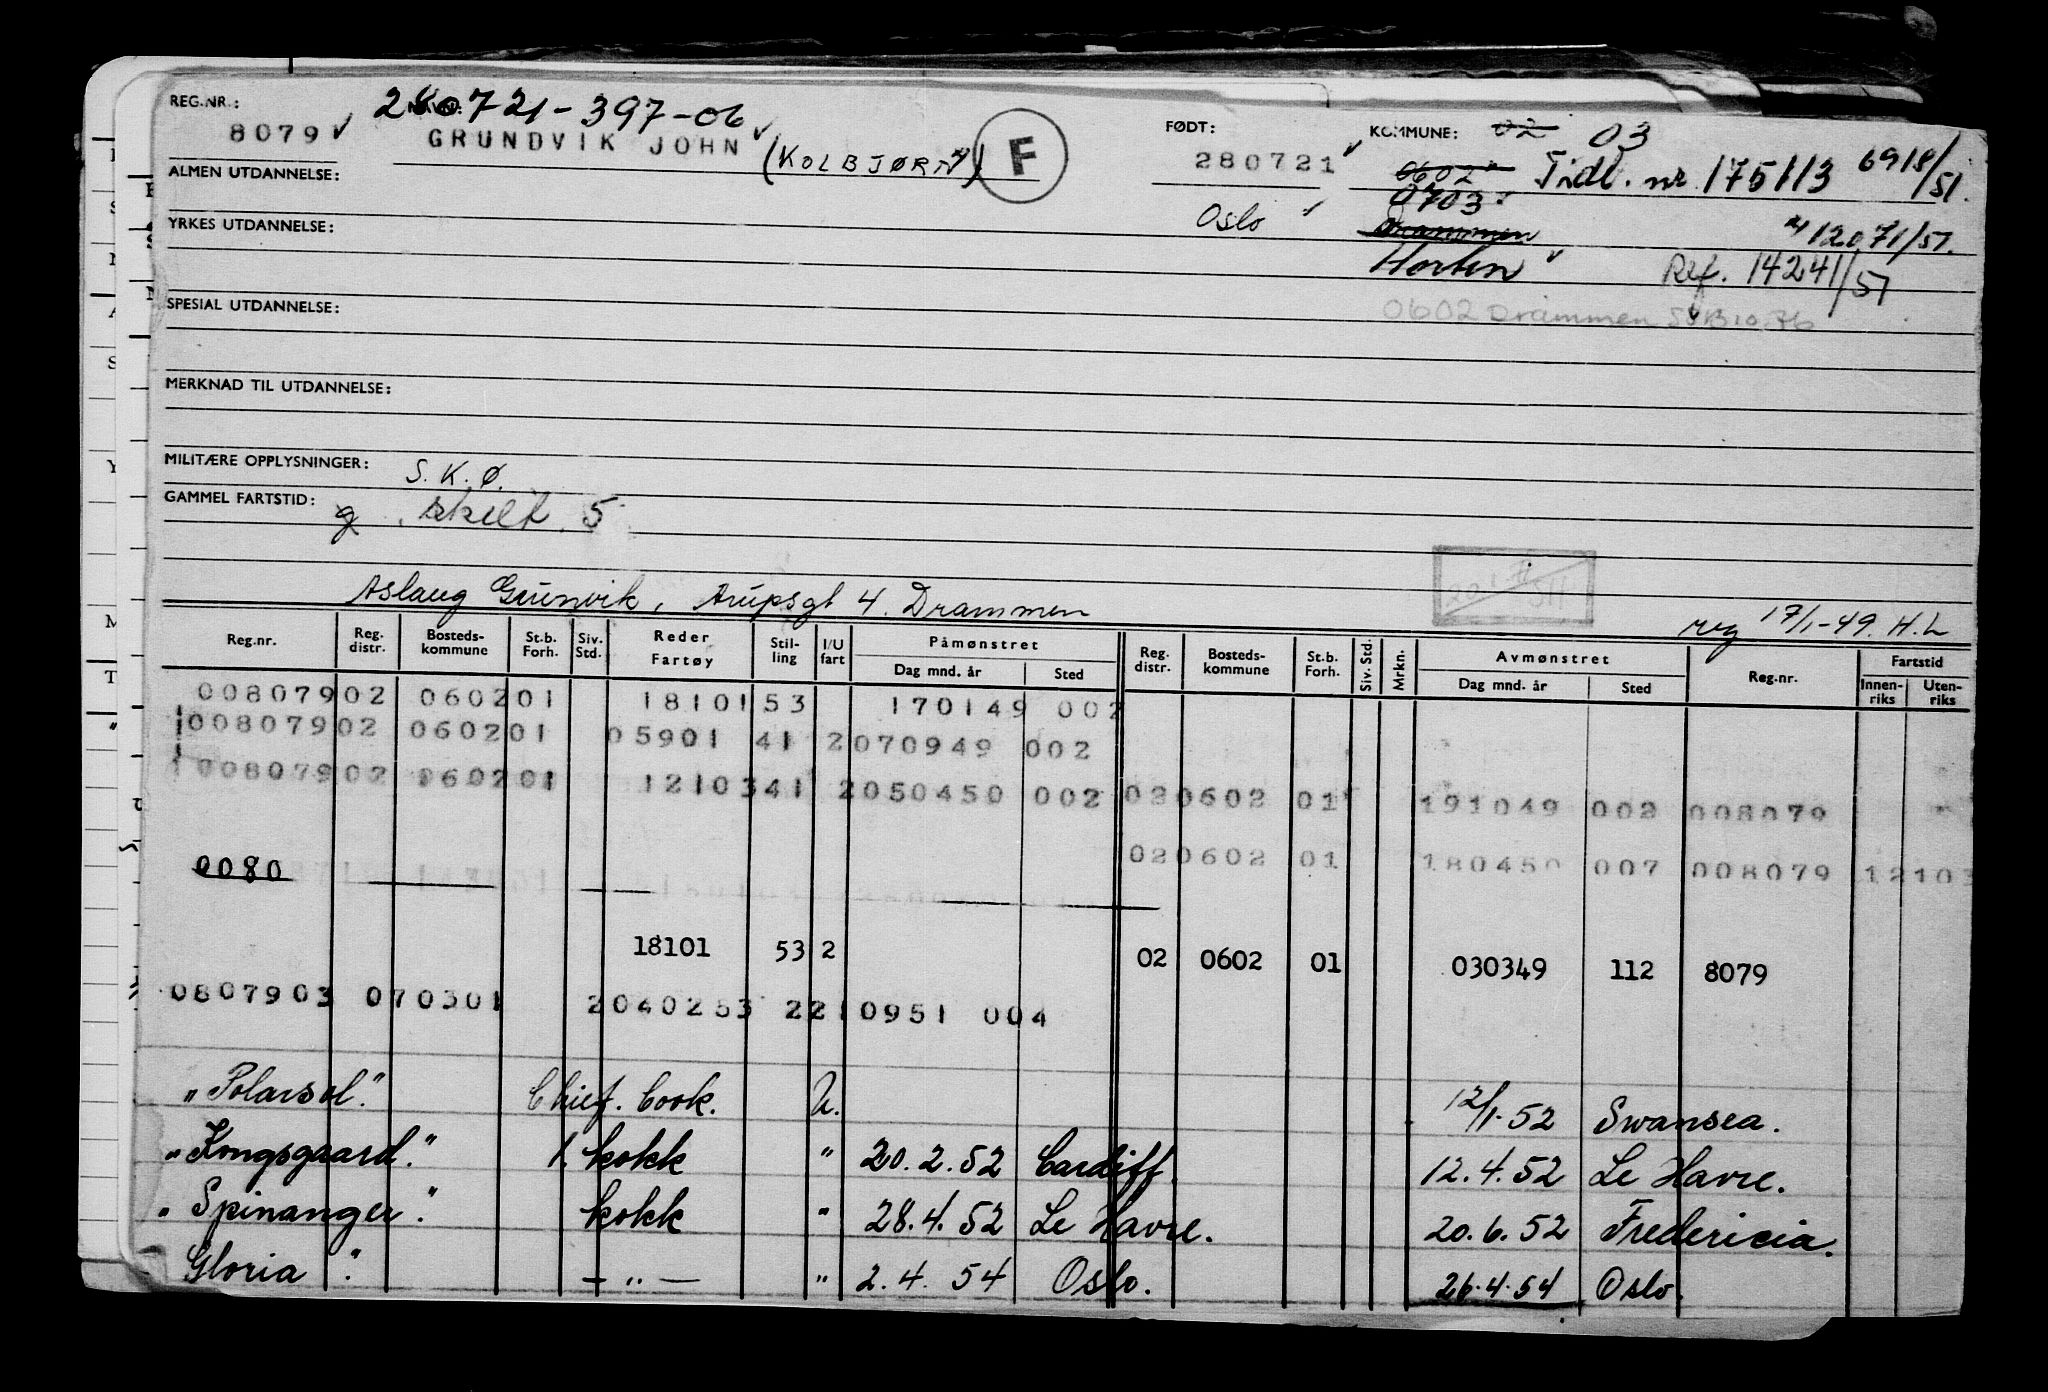 REG.NR.: 280721-397-06 FØDT: KOMMUNE: 02 03
8079 GRUNDVIK JOHN (KOLBJØRN) F 280721 0602 Tidl. nr. 175113 6918/51.
ALMEN UTDANNELSE: 0703
YRKES UTDANNELSE: Oslo Drammen 12071/51.
Horten Ref. 14241/51
SPESIAL UTDANNELSE: 0602 Drammen
MERKNAD TIL UTDANNELSE:
MILITÆRE OPPLYSNINGER: S.K.Ø.
GAMMEL FARTSTID: g. skilt. 5
Aslaug Grunvik, Arupsgt 4. Drammen
reg 17/1-49. H.L
Reg.nr. Reg. distr. Bosteds-kommune St.b. Forh. Siv. Std. Reder Fartøy Stil-ling I/U fart Påmønstret Dag mnd. år Sted Reg. distr. Bosteds-kommune St.b. Forh. Siv. Std. Mrkn. Avmønstret Dag mnd. år Sted Reg.nr. Fartstid Innen-riks Uten-riks
00807902 060201 18101 53 170149 002
00807902 060201 05901 41 2070949 002
00807902 060201 12103 41 2050450 002 020602 01 191049 002 008079
020602 01 180450 007 008079 12103
0080
18101 53 2 02 0602 01 030349 112 8079
0807903 070301 20402 53 2210951 004
"Polarsol." Chief. Cook. U. 12/1-52 Swansea.
"Kongsgaard." 1. kokk " 20.2.52 Cardiff. 12.4.52 Le Havre.
"Spinanger." kokk " 28.4.52 Le Havre. 20.6.52 Fredericia.
Gloria " — " — " 2.4.54 Oslo. 26.4.54 Oslo.